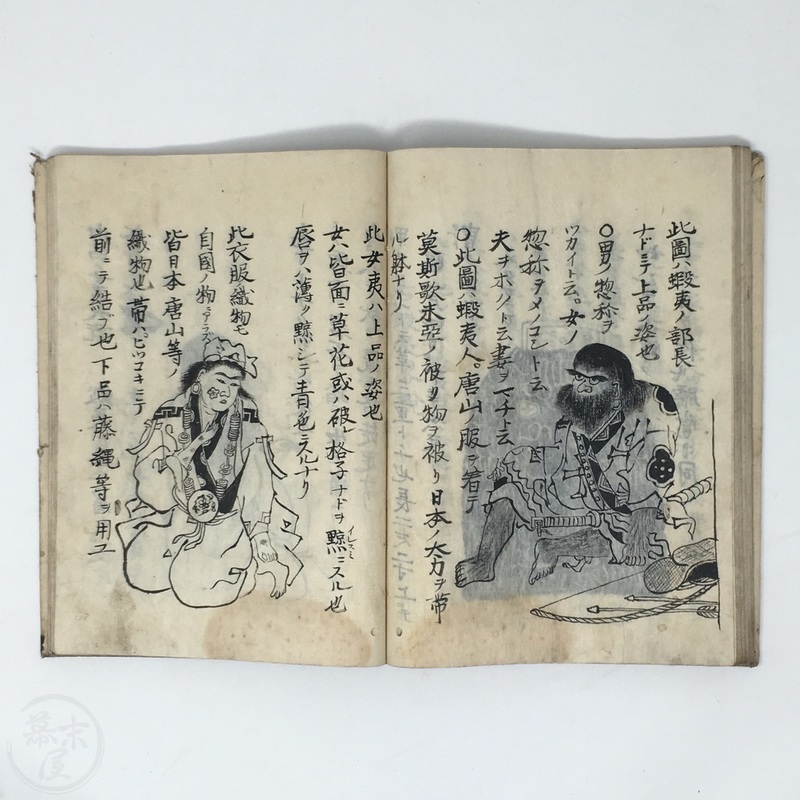 此圖ハ蝦夷ノ部長
ナドニテ上品ノ姿也
○男ノ惣称ヲ
ツカイト云。女ノ
惣称ヲメノコント云
夫ヲホノト云妻ヲマチト云
○此圖ハ蝦夷人。唐山服ヲ着テ
莫斯歌未亞ノ被リ物ヲ被リ日本ノ大刀ヲ帯
ル躰ナリ
此女夷ハ上品ノ姿也
女ハ皆面ニ草花或ハ破レ格子ナドヲ黥ニスル也
イレズミ
唇ヲハ薄ク黥シテ青色ニスルナリ
此衣服織物モ
自国ノ物ニアラズ
皆日本唐山等ノ
織物也 帯ハヒツコキニテ
前ニテ結ブ也下品ハ藤縄等ヲ用ユ
幕末屋